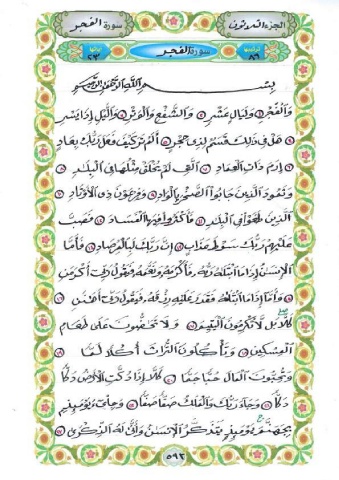 الجزء الثلاثون سورة الفجر
ترتيبها سورة الفجر آياتها
٨٩
بِسْمِ اللَّهِ الرَّحْمَٰنِ الرَّحِيمِ
وَالْفَجْرِ ۝ وَلَيَالٍ عَشْرٍ ۝ وَالشَّفْعِ وَالْوَتْرِ ۝ وَالَّيْلِ إِذَا يَسْرِ
۝ هَلْ فِي ذَٰلِكَ قَسَمٌ لِّذِي حِجْرٍ ۝ أَلَمْ تَرَ كَيْفَ فَعَلَ رَبُّكَ بِعَادٍ
۝ إِرَمَ ذَاتِ الْعِمَادِ ۝ الَّتِي لَمْ يُخْلَقْ مِثْلُهَا فِي الْبِلَٰدِ
۝ وَثَمُودَ الَّذِينَ جَابُوا الصَّخْرَ بِالْوَادِ ۝ وَفِرْعَوْنَ ذِي الْأَوْتَادِ
۝ الَّذِينَ طَغَوْا فِي الْبِلَٰدِ ۝ فَأَكْثَرُوا فِيهَا الْفَسَادَ ۝ فَصَبَّ
عَلَيْهِمْ رَبُّكَ سَوْطَ عَذَابٍ ۝ إِنَّ رَبَّكَ لَبِالْمِرْصَادِ ۝ فَأَمَّا
الْإِنسَٰنُ إِذَا مَا ابْتَلَىٰهُ رَبُّهُ فَأَكْرَمَهُ وَنَعَّمَهُ فَيَقُولُ رَبِّي أَكْرَمَنِ
۝ وَأَمَّا إِذَا مَا ابْتَلَىٰهُ فَقَدَرَ عَلَيْهِ رِزْقَهُ فَيَقُولُ رَبِّي أَهَٰنَنِ
۝ كَلَّا بَل لَّا تُكْرِمُونَ الْيَتِيمَ ۝ وَلَا تَحَٰضُّونَ عَلَىٰ طَعَامِ
الْمِسْكِينِ ۝ وَتَأْكُلُونَ التُّرَاثَ أَكْلًا لَّمًّا
۝ وَتُحِبُّونَ الْمَالَ حُبًّا جَمًّا ۝ كَلَّا إِذَا دُكَّتِ الْأَرْضُ دَكًّا
دَكًّا ۝ وَجَاءَ رَبُّكَ وَالْمَلَكُ صَفًّا صَفًّا ۝ وَجِايءَ يَوْمَئِذٍ
بِجَهَنَّمَ يَوْمَئِذٍ يَتَذَكَّرُ الْإِنسَٰنُ وَأَنَّىٰ لَهُ الذِّكْرَىٰ ۝
٥٩٣